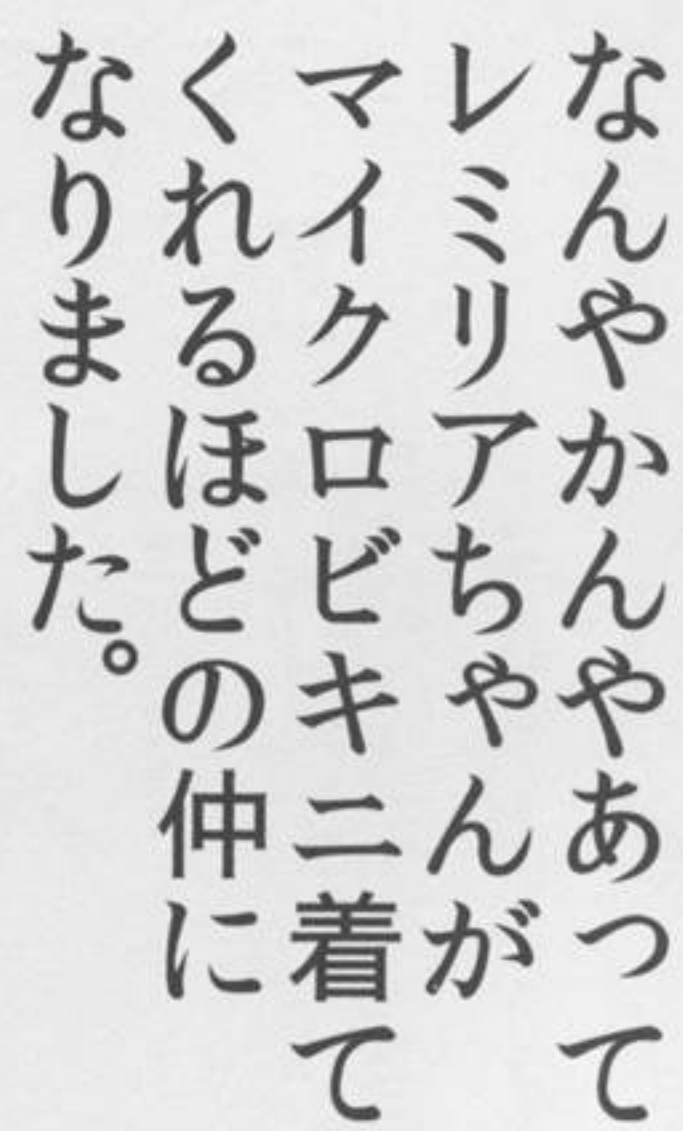 なんやかんやあって
レミリアちゃんが
マイクロビキニ着て
くれるほどの仲に
なりました。